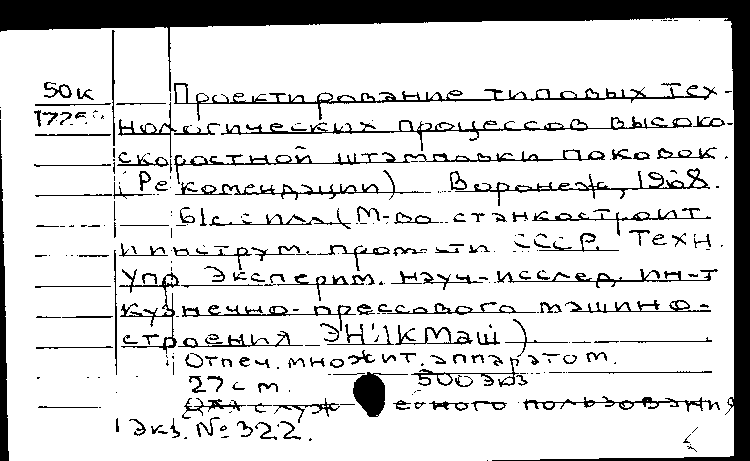 50к
Проектирование типовых тех-
нологических процессов высоко-
скоростной штамповки поковок.
(Рекомендации) Воронеж, 1968.
с илл (М-во станкостроит.
и инструм. пром-сти СССР. Техн.
упр. Эксперим. науч-исслед. ин-т
кузнечно-прессового машино-
строения ЭНИКМаш).
Отпеч. множит. аппаратом.
27 см. 500 экз
Для служебного пользования
1 экз. № 322.